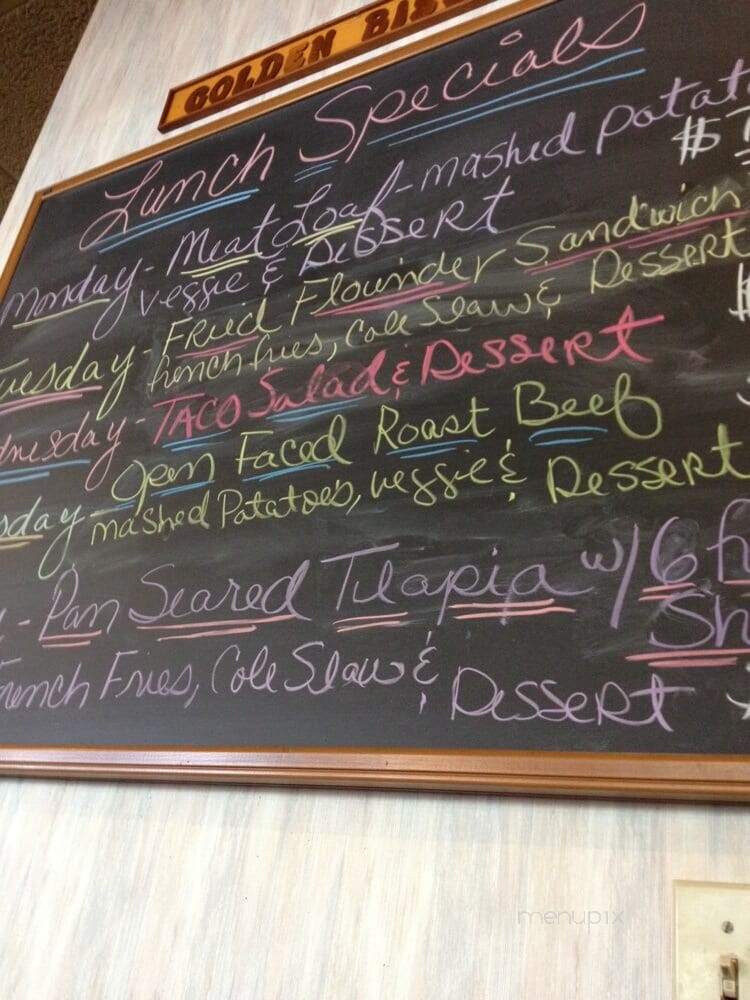 GOLDEN BIS
Lunch Specials
Monday - Meat Loaf - mashed potat
veggie & Dessert
$7
uesday - Fried Flounder Sandwich
french fries, Cole Slaw & Dessert
dnesday - TACO Salad & Dessert
sday - Open Faced Roast Beef
mashed Potatoes, veggie & Dessert
y - Pan Seared Tilapia w/ 6 f
Sh
French Fries, Cole Slaw & Dessert
menupix